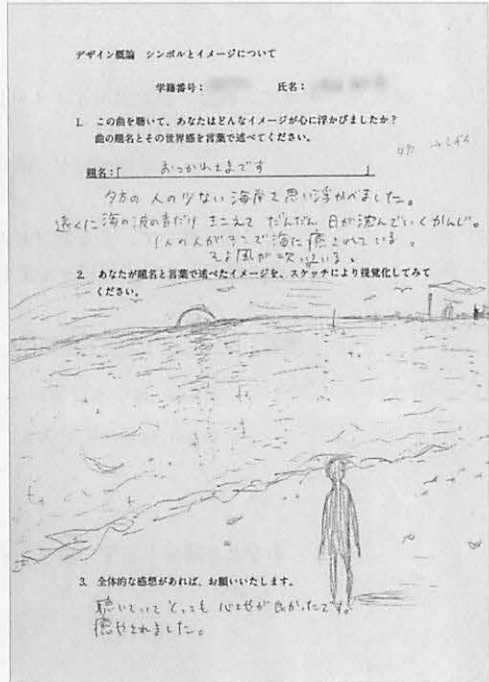 デザイン概論 シンボルとイメージについて
学籍番号： 氏名：
1. この曲を聴いて、あなたはどんなイメージが心に浮かびましたか？
曲の題名とその世界感を言葉で述べてください。
題名：「 おつかれさまです 」
夕方の 人の少ない 海岸を思い浮かべました。
遠くに海の波の音だけ きこえて だんだん 日が沈んでいくかんじ。
1人の人がそこで海に癒されている。
そよ風が吹いている。
2. あなたが題名と言葉で述べたイメージを、スケッチにより視覚化してみて
ください。
3. 全体的な感想があれば、お願いいたします。
聴いていて とっても 心地が良かったです。
癒やされました。